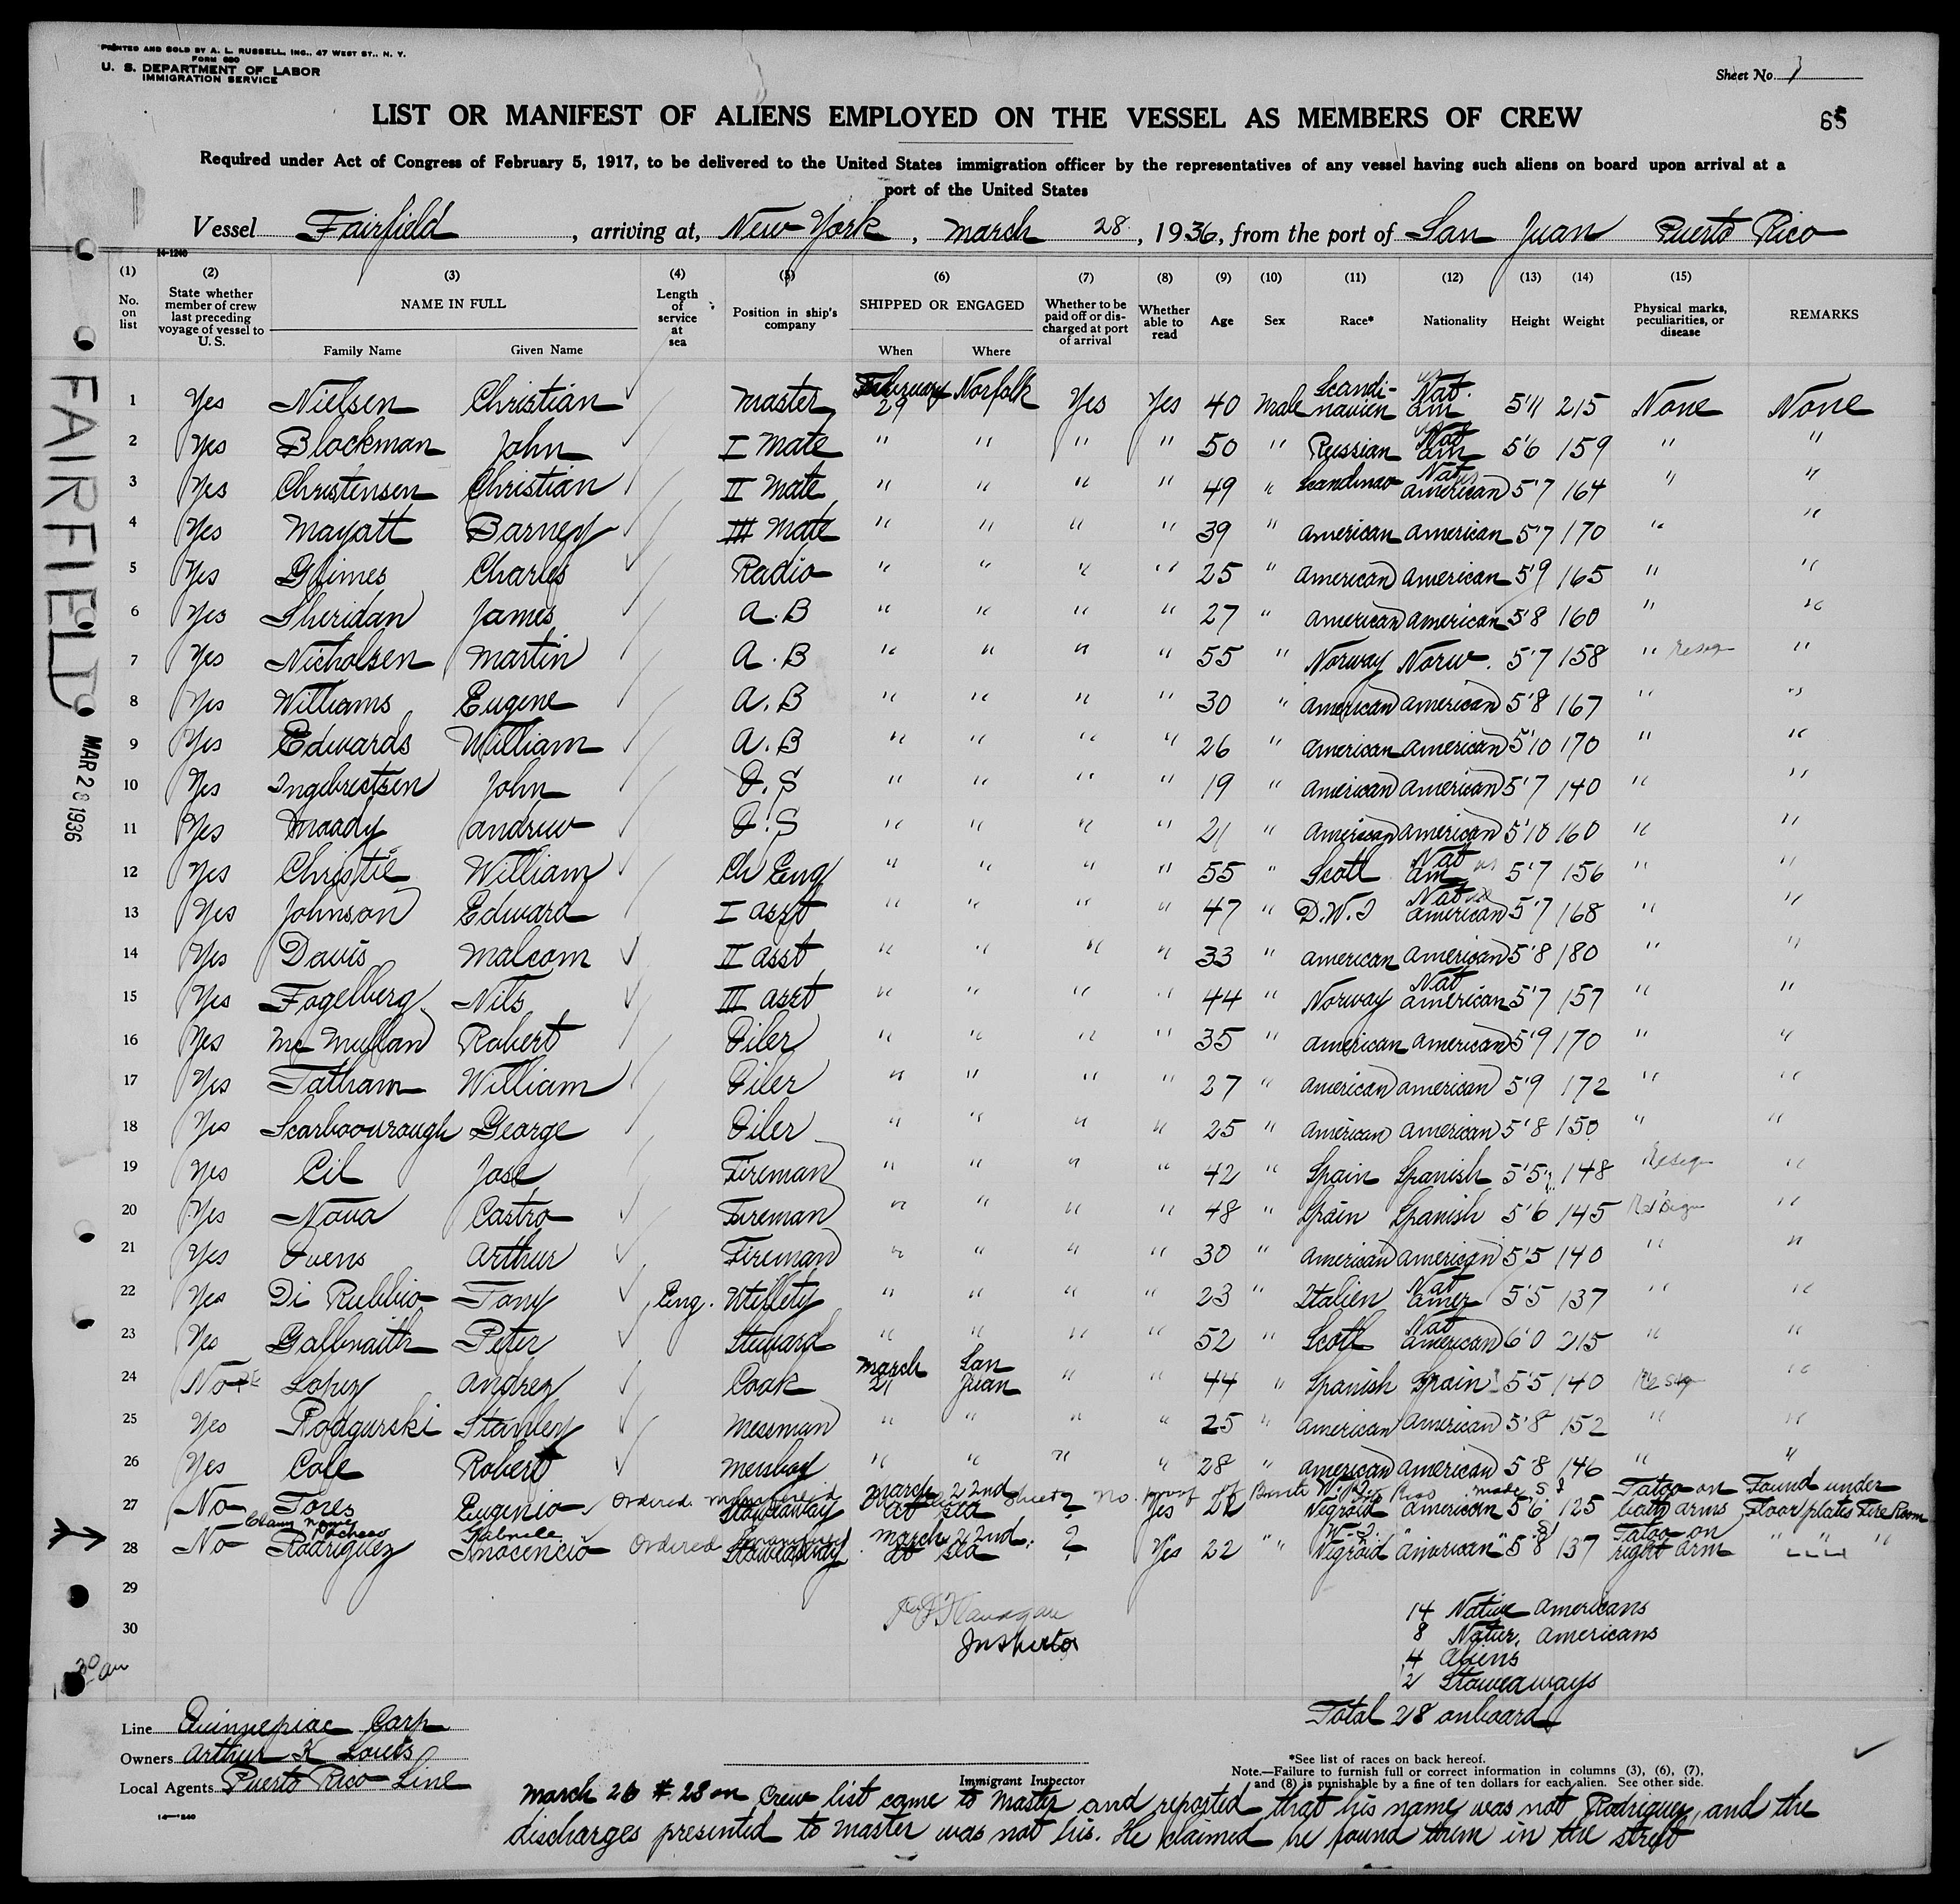 PRINTED AND SOLD BY A. L. RUSSELL, INC., 47 WEST ST., N. Y.
FORM 680
U. S. DEPARTMENT OF LABOR
IMMIGRATION SERVICE
Sheet No. 1
LIST OR MANIFEST OF ALIENS EMPLOYED ON THE VESSEL AS MEMBERS OF CREW
65
Required under Act of Congress of February 5, 1917, to be delivered to the United States immigration officer by the representatives of any vessel having such aliens on board upon arrival at a
port of the United States
Vessel Fairfield, arriving at, New York, March 28, 1936, from the port of San Juan Puerto Rico
14-1240
(1) No. on list (2) State whether member of crew last preceding voyage of vessel to U. S. (3) NAME IN FULL Family Name Given Name (4) Length of service at sea (5) Position in ship's company (6) SHIPPED OR ENGAGED When Where (7) Whether to be paid off or discharged at port of arrival (8) Whether able to read (9) Age (10) Sex (11) Race* (12) Nationality (13) Height (14) Weight (15) Physical marks, peculiarities, or disease REMARKS
1 Yes Nielsen Christian Master February 29 Norfolk Yes Yes 40 Male Scandinavien Nat. am 5'11 215 None None
2 Yes Blockman John I Mate " " " " 50 " Russian Nat am 5'6 159 " "
3 Yes Christensen Christian II Mate " " " " 49 " Scandinav Nat american 5'7 164 " "
4 Yes Mayatt Barney III Mate " " " " 39 " american american 5'7 170 " "
5 Yes Grimes Charles Radio " " " " 25 " american american 5'9 165 " "
6 Yes Sheridan James A.B " " " " 27 " american american 5'8 160 " "
7 Yes Nicholsen Martin A.B " " " " 55 " Norway Norw. 5'7 158 " "
8 Yes Williams Eugene A.B " " " " 30 " american american 5'8 167 " "
9 Yes Edwards William A.B " " " " 26 " american american 5'10 170 " "
10 Yes Ingebrectsen John O.S " " " " 19 " american american 5'7 140 " "
11 Yes Moody Andrew O.S " " " " 21 " american american 5'10 160 " "
12 Yes Christie William Ch Eng " " " " 55 " Scott Nat am 5'7 156 " "
13 Yes Johnson Edward I asst " " " " 47 " D.W.I Nat american 5'7 168 " "
14 Yes Davis Malcom II asst " " " " 33 " american american 5'8 180 " "
15 Yes Fogelberg Nils III asst " " " " 44 " Norway Nat american 5'7 157 " "
16 Yes Mc Mullan Robert Oiler " " " " 35 " american american 5'9 170 " "
17 Yes Tatham William Oiler " " " " 27 " american american 5'9 172 " "
18 Yes Scarboourough George Oiler " " " " 25 " american american 5'8 150 " "
19 Yes Cil Jose Fireman " " " " 42 " Spain Spanish 5'5 148 "
20 Yes Nova Castro Fireman " " " " 48 " Spain Spanish 5'6 145 "
21 Yes Ovens Arthur Fireman " " " " 30 " american american 5'5 140 " "
22 Yes Di Rubbio Tony Eng. Utillety " " " " 23 " Italien Nat amer 5'5 137 " "
23 Yes Galbraith Peter Steward " " " " 52 " Scott Nat american 6'0 215 " "
24 No Lopez Andrez Cook March 21 San Juan " " 44 " Spanish Spain 5'5 140 "
25 Yes Rodgurski Stanley Messman " " " " 25 " american american 5'8 152 " "
26 Yes Cole Robert Messboy " " " " 28 " american american 5'8 146 " "
27 No Tores Eugenio Ordered Stowaway March 22nd at sea ? no proof of Birth Yes 22 Nigroid american 5'6 125 Tatoo on both arms Found under Floor plates Fire Room
28 No Claims name Pacheco Gabriele Rodriguez Innocencio Ordered Stowaway March 22nd at sea ? Yes 22 " W.I. Nigroid american 5'8 137 Tatoo on right arm " " "
29
30
Inspector
14 Native americans
8 Natur. americans
4 aliens
2 Stoweaways
Total 28 onboard
Line Quinnepiac Corp
Owners Arthur K Louis
Local Agents Puerto Rico Line
Immigrant Inspector
*See list of races on back hereof.
Note.—Failure to furnish full or correct information in columns (3), (6), (7),
and (8) is punishable by a fine of ten dollars for each alien. See other side.
March 26 # 28 on Crew list came to Master and reported that his name was not Rodriguez, and the
discharges presented to Master was not his. He claimed he found them in the street
FAIRFIELD
MAR 28 1936